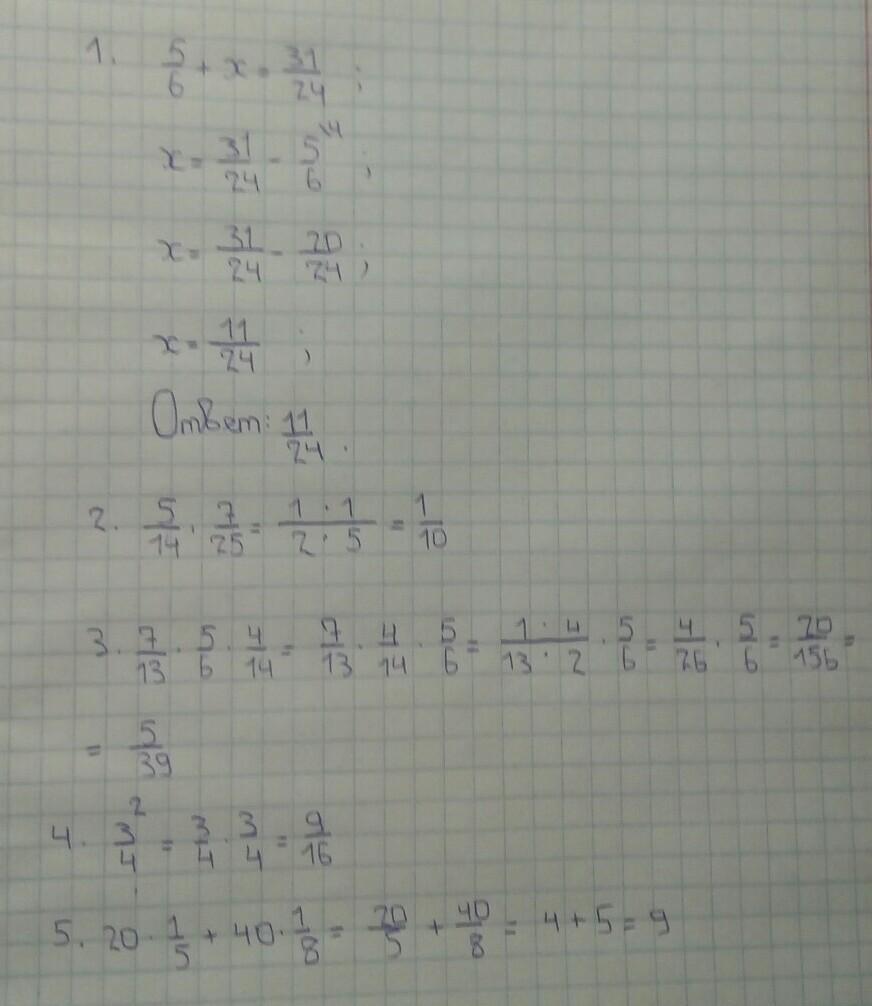 1. 5/6 + x = 31/24 ;
x = 31/24 - 5\4/6 ;
x = 31/24 - 20/24 ;
x = 11/24 ;
Ответ: 11/24 .
2. 5/14 · 7/25 = 1 · 1 / 2 · 5 = 1/10
3. 7/13 · 5/6 · 4/14 = 7/13 · 4/14 · 5/6 = 1 · 4 / 13 · 2 · 5/6 = 4/26 · 5/6 = 20/156 =
= 5/39
4. 3²/4 = 3/4 · 3/4 = 9/16
5. 20 · 1/5 + 40 · 1/8 = 20/5 + 40/8 = 4 + 5 = 9